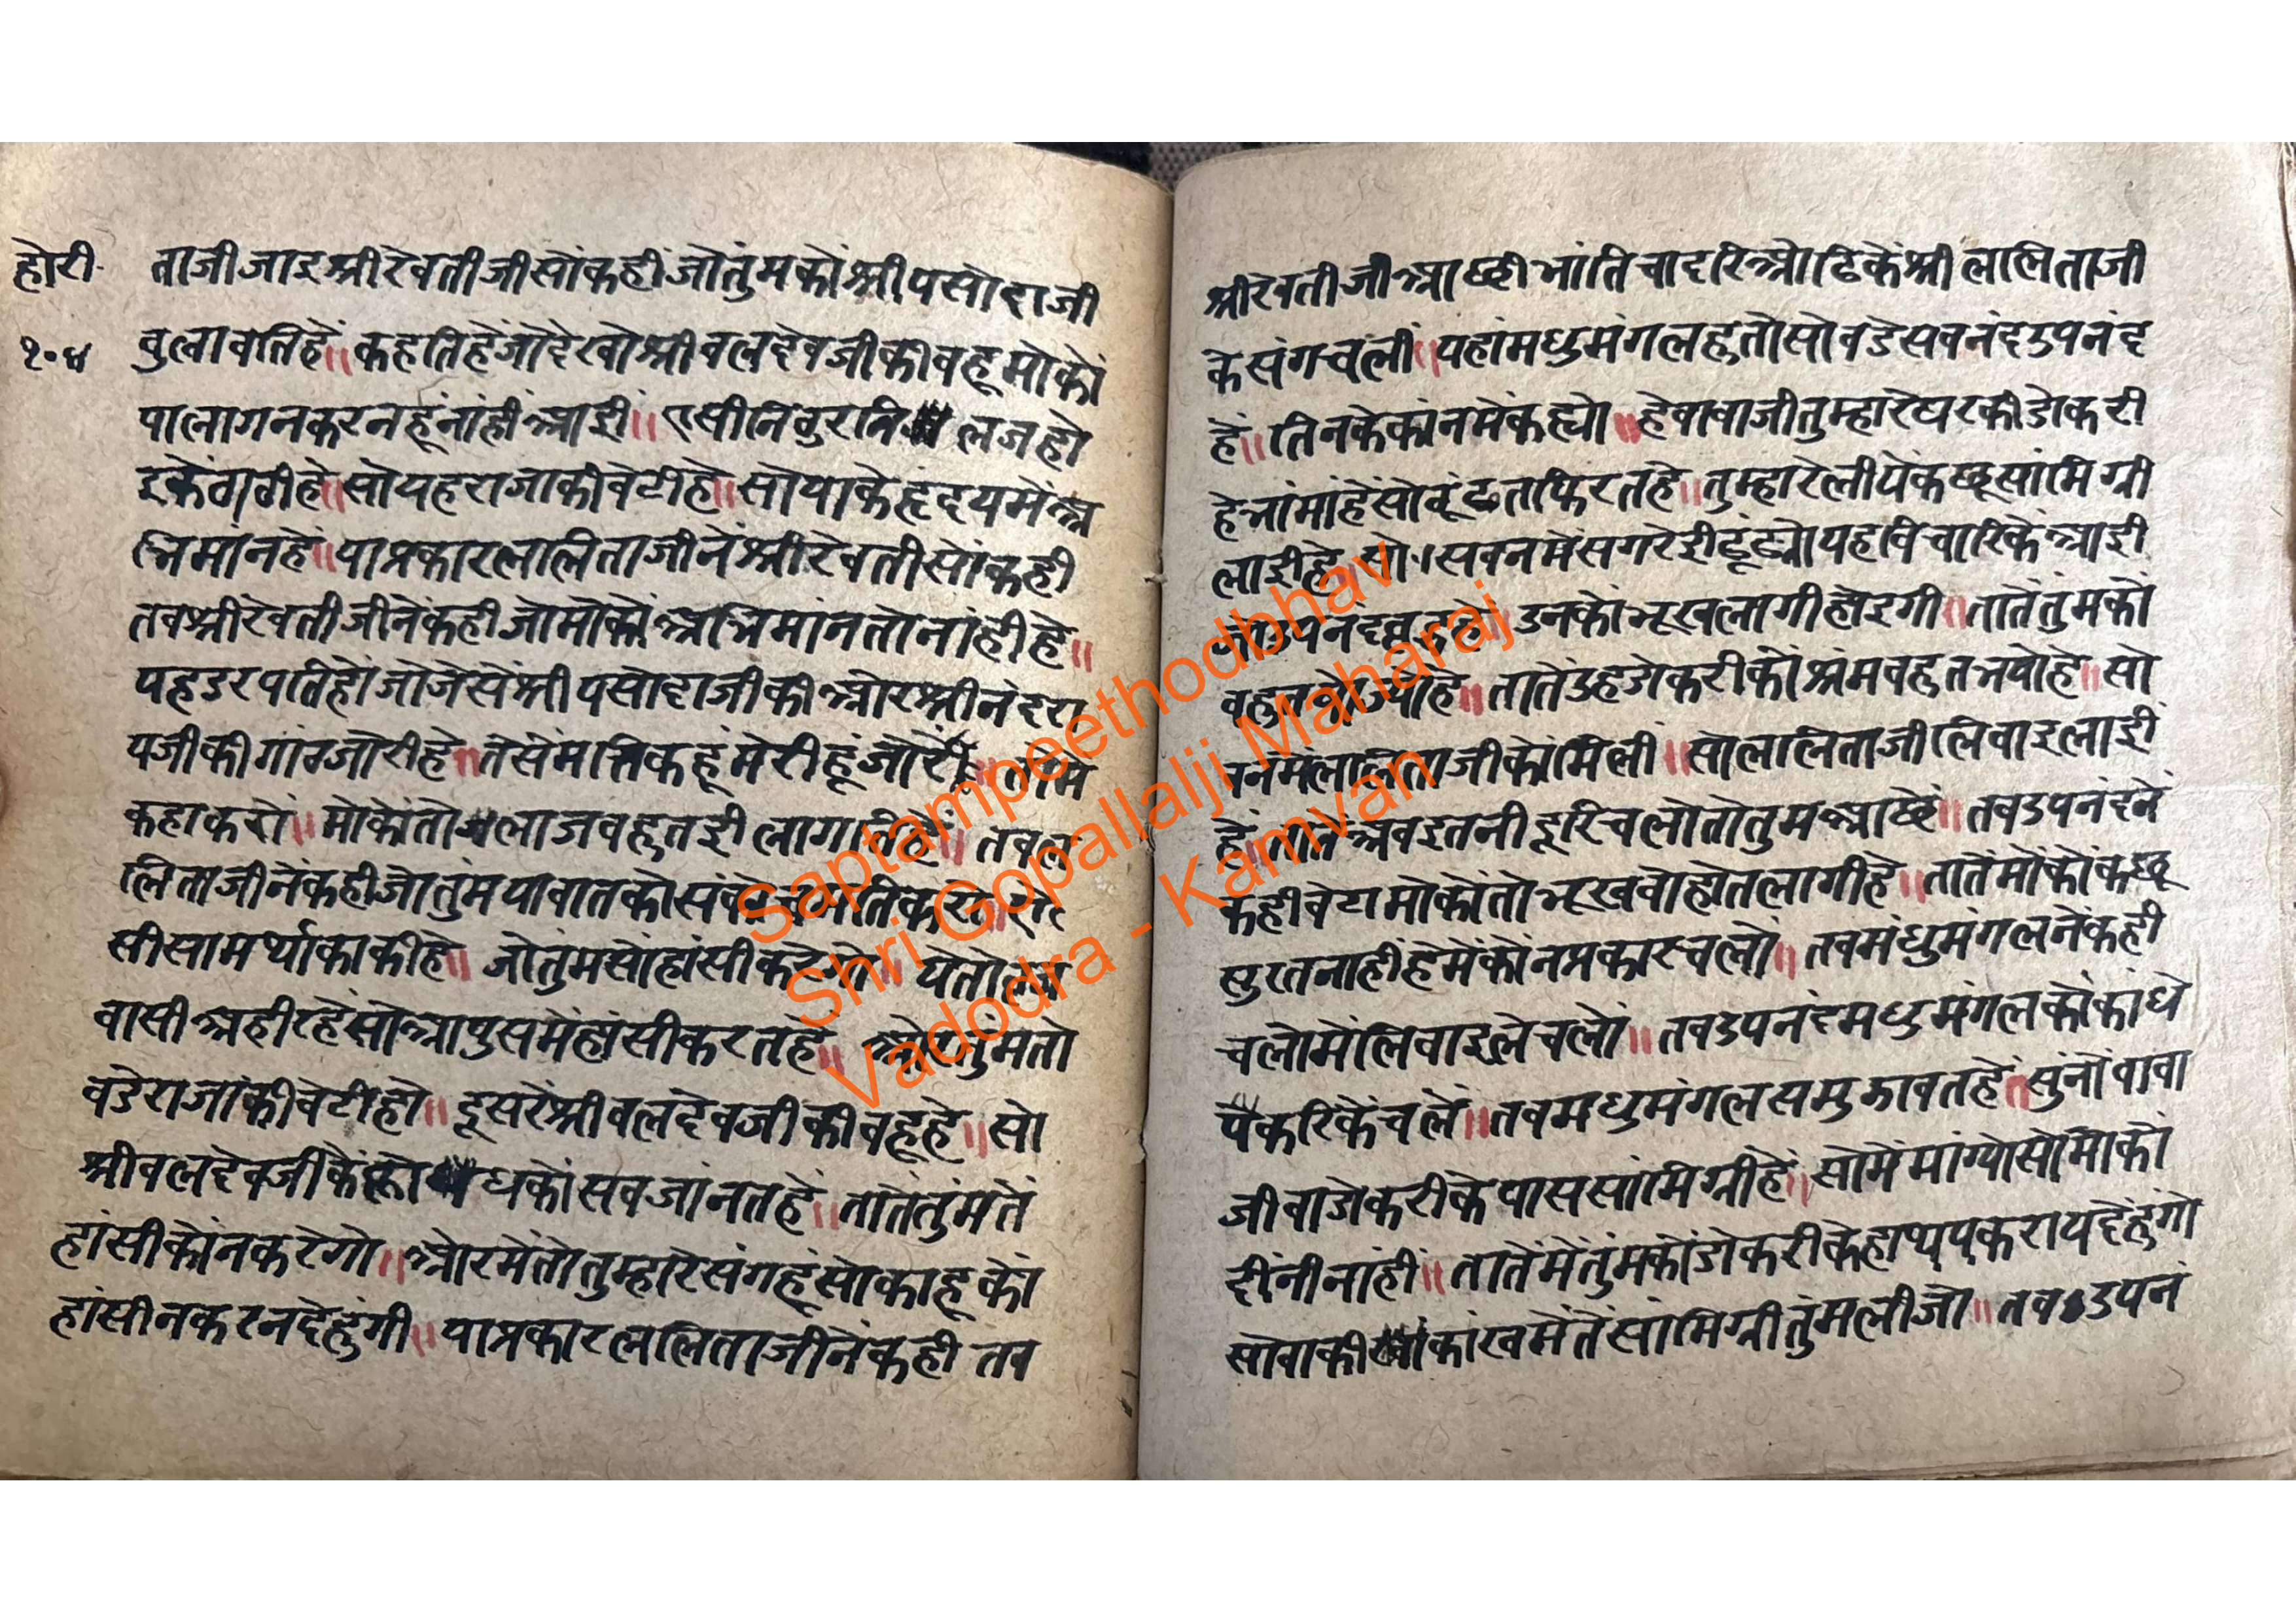 होरी
१०४
ताजीजाइश्रीरेवतीजीसोंकहीजोतुंमकोंश्रीयसोदाजी
वुलावतिहें॥कहतिहेंजोदेखोश्रीवलदेवजीकीवहूमोकों
पालागनकरनहूंनांहीआई॥एसीनिवुरनि लजहो
इकेंवाठीहे॥सोयहराजाकीवेटीहे॥सोयाकेहृदयमेंअ
भिमांनहे॥याप्रकारललिताजीनेंश्रीरेवतीसोंकही
तवश्रीरेवतीजीनेंकहीजोमोकोंअभिमांनतोनांहीहे॥
यहडरपतिहोंजोजेसेंश्रीयसोदाजीकीओरश्रीनंदरा
यजीकीगांठजोरीहे॥तेसेंमतिकहूंमेरीहूंजोरें॥
कहाकरों॥मोकोंतोलाजवहुतहीलागतिहें॥तवल
लिताजीनेंकहीजोतुंमयावातकोसंकोचमतिकरो॥
सीसामर्थ्यकाकीहे॥जोतुमसोंहांसीकरेगो॥येतो
वासीअहीरहेंसोआपुसमेंहांसीकरतहें॥ओरतुंमतो
वडेराजांकीवेटीहो॥दूसरेंश्रीवलदेवजीकीवहूहे॥सो
श्रीवलदेवजीकेंक्रोधकोंसवजांनतहें॥तातेंतुंमतें
हांसीकोंनकरेगो॥ओरमेंतोतुम्हारेसंगहूंसोकाहूकों
हांसीनकरनदेहुंगी॥याप्रकारललिताजीनेंकही तव
श्रीरेवतीजीआछीभांतिचादरिओढिकेंश्रीललिताजी
केसंगचलीं॥यहांमधुमंगलहुतोसोवडेसवनंदउपनंद
हें॥तिनकेकांनमेंकह्यो॥हेवावाजीतुम्हारेघरकीडोकरी
हेभांमांहेंसोढूंढतफिरतहे॥तुम्हारेलीयेंकछूसांमिग्री
लाईहे॥सो।सवनमेंसगरेईढूंढ्योयहविचारिकेंआई
जोउपनंदवृद्धहें॥उनकोंभूखलागीहोइगी॥तातेंतुमकों
वहुतखोज्योहे॥तातेंउहडोकरीकोंश्रमवहुतभयोहे॥सो
वनमेंललिताजीकोंमिली॥सोललिताजीलिवाइलाई
हें॥तातेंअवइतनीदूरिचलोतोतुमआछें॥तवउपनंदनें
कहीवेटामोकोंतोभूखवोहोतलागीहे॥तातेंमोंकोंकछू
सुरतनाहींहेमेंकोंनप्रकारचलों॥तवमंधुमंगलनेंकही
चलोमेंलिवाइलेचलों॥तवउपनंदमधुमंगलकोंकांधे
पेंकरिकेंचलें॥तवमधुमंगलसमुझावतहें॥सुंनोंवावा
जीवाडोकरीकेपाससांमिग्रीहे॥सोमेंमांग्योसोमोकों
दींनींनाहीं॥तातेंमेंतुंमकोंडोकरीकेहाथपकरायदेहुंगो
सोवाकीकांखमेंतेंसांमिग्रीतुंमलीजो॥तवउपनं